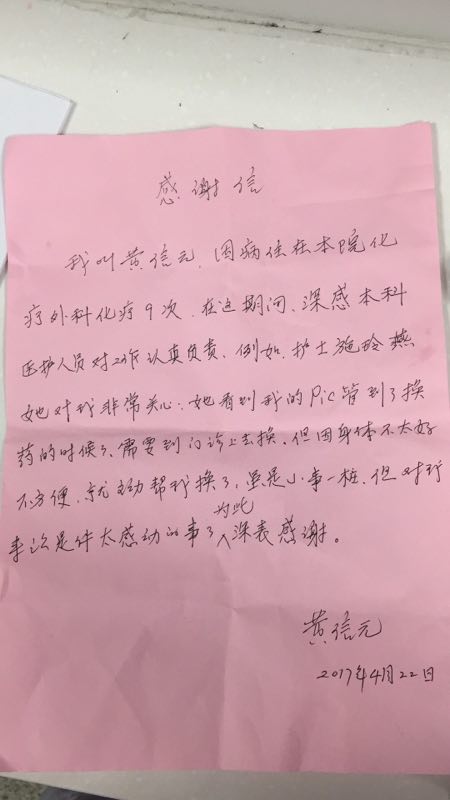 感谢信
我叫黄信元，因病住在本院化
疗外科化疗9次，在这期间、深感本科
医护人员对工作认真负责、例如、护士施玲燕
她对我非常关心：她看到我的Pic管到了换
药的时候了、需要到门诊上去换、但因身体不太好
不方便、就主动帮我换了，虽是小事一桩、但对我
来说是件太感动的事了为此深表感谢。
黄信元
2017年4月22日